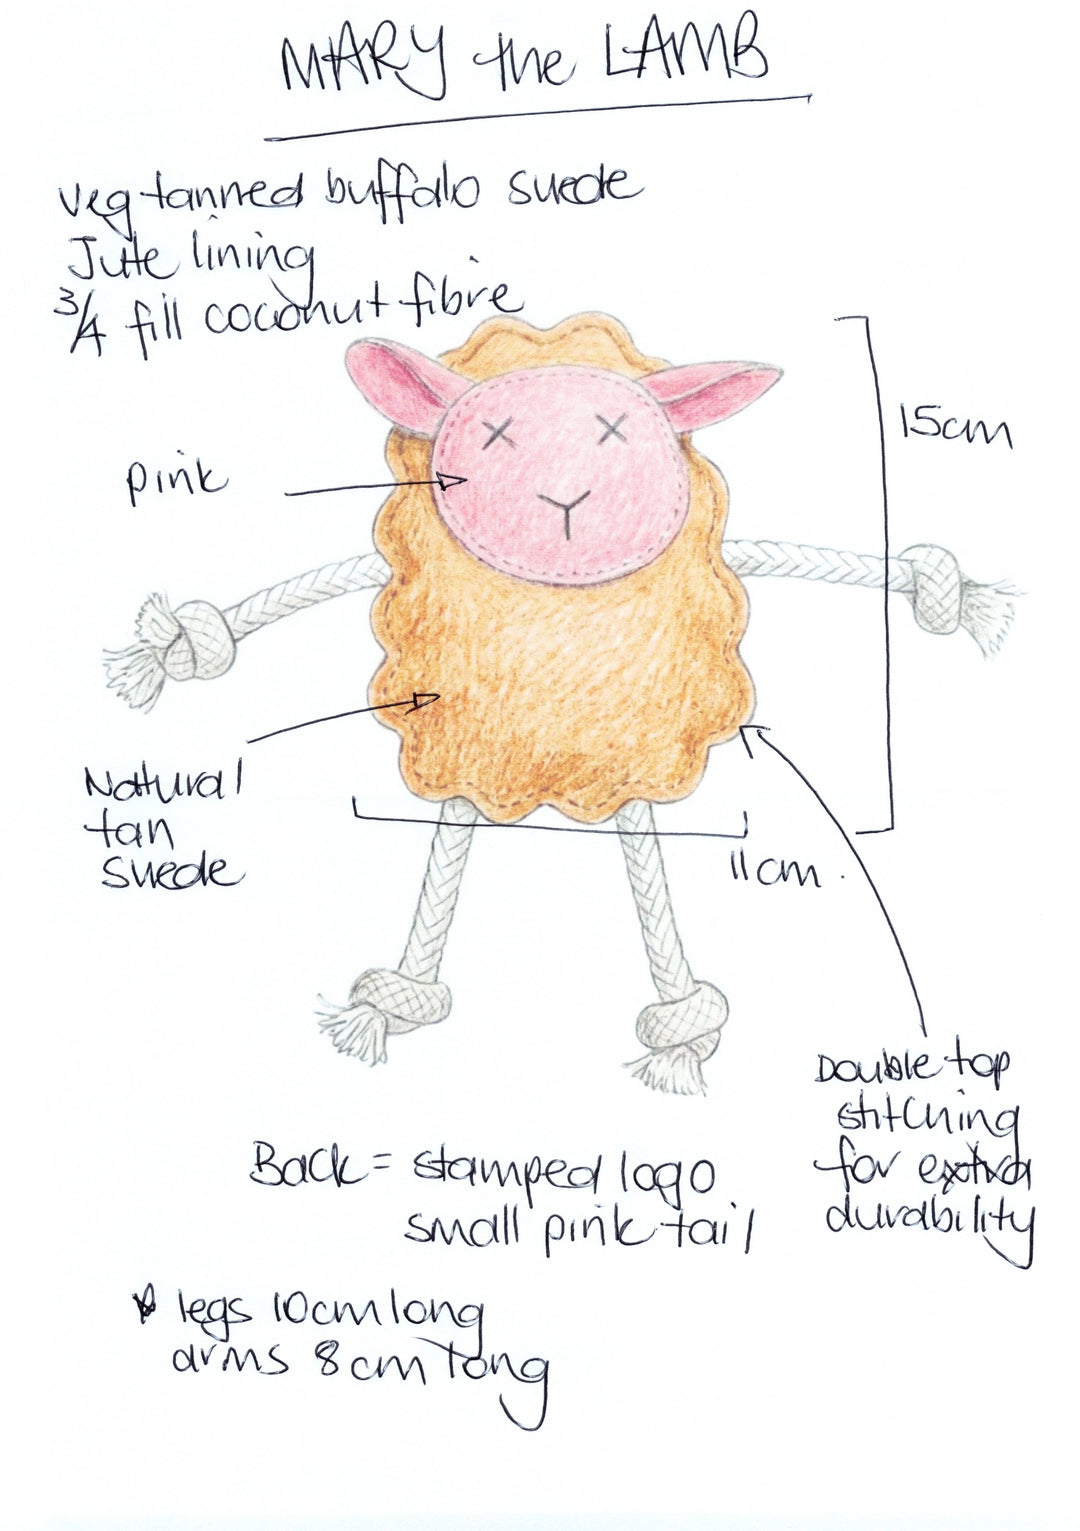 MARY the LAMB
veg tanned buffalo suede
Jute lining
3/4 fill coconut fibre
15cm
pink
Natural
tan
suede
11cm.
Double top
stitching
for extra
durability
Back = stamped logo
small pink tail
legs 10cm long
arms 8cm long